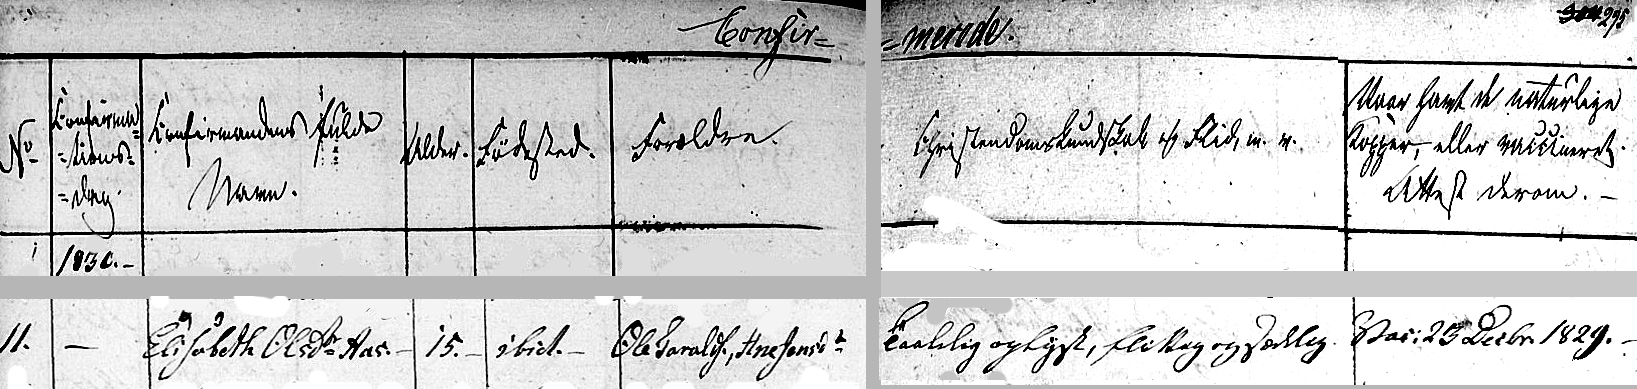 Confir=
=merede.
295
No
Confirma=
=tions=
=dag.
Confirmandens fulde
Navn.
Alder.
Fødested.
Forældre.
Christendomskundskab og Flid, m. v.
Naar havt de naturlige
Kopper, eller vaccineret.
Attest derom. —
1
1830. —
11. — Elisabeth Olsdr Aas. — 15. — ibid. — Ole Haralds., Ane Jensdr
oplyst, flittig og sædelig. Vac: 23 Decbr. 1829. —